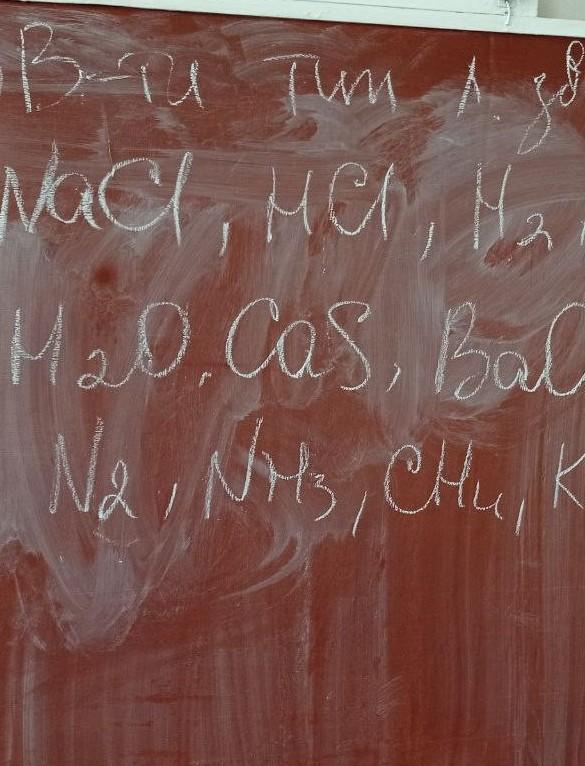 В-ти тип х. зв
NaCl, HCl, H₂,
H₂O, CaS, BaC
N₂, NH₃, CH₄, K